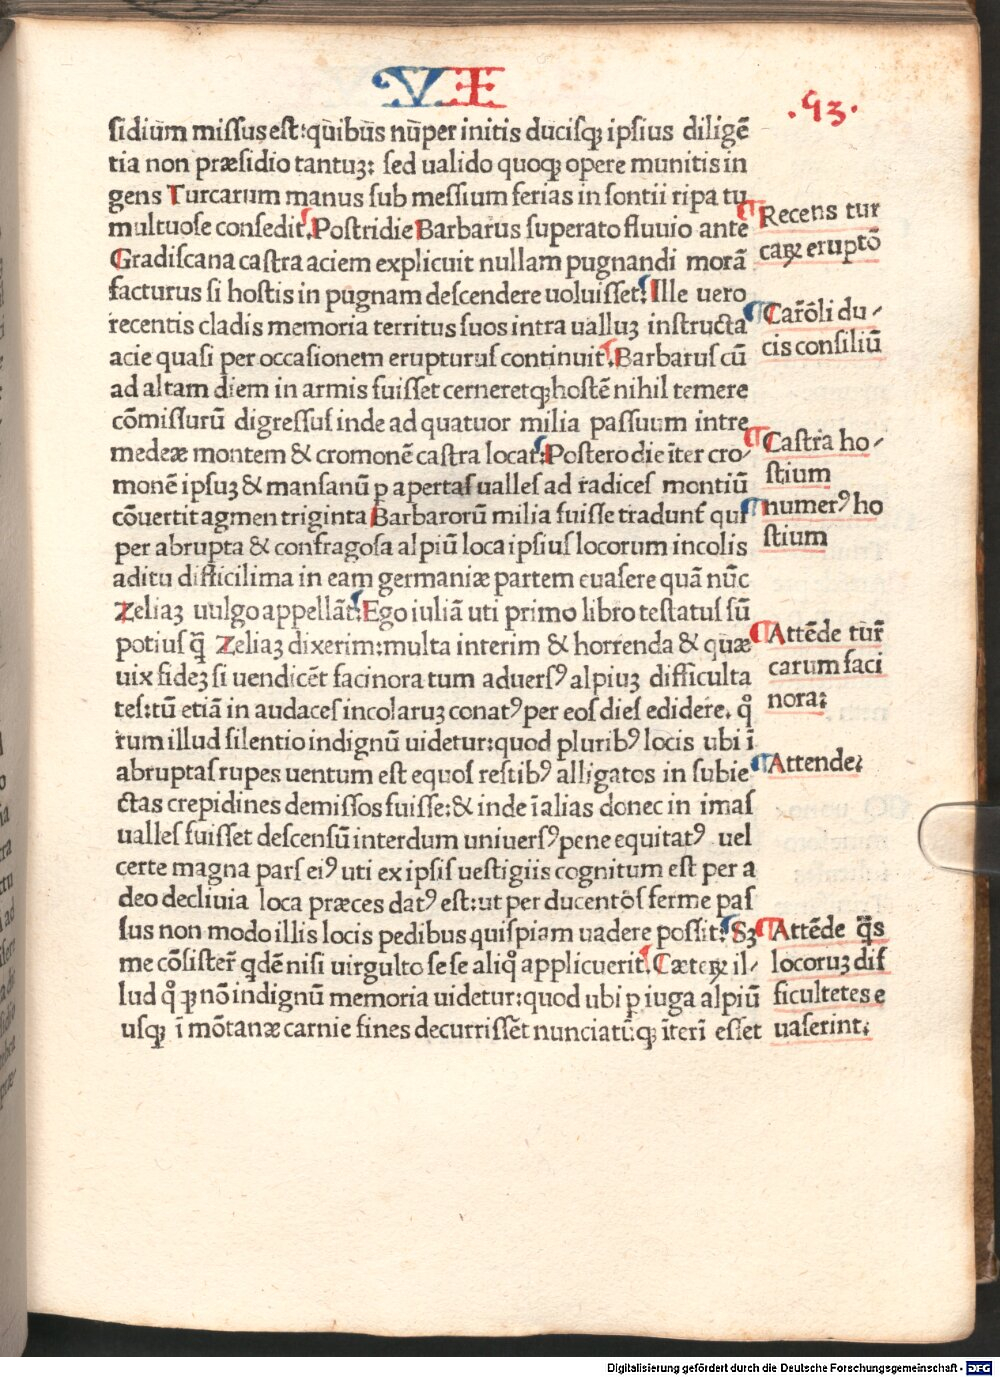 VI
.93.
sidium missus est: quibus nuꝑ initis ducisqꝫ ipsius diligē
tia non præsidio tantuꝫ: sed ualido quoqꝫ opere munitis in
gens Turcarum manus sub messium ferias in sontii ripa tu
multuose consedit. Postridie Barbarus superato fluuio ante
Gradiscana castra aciem explicuit nullam pugnandi morā
facturus si hostis in pugnam descendere uoluisset: Ille uero
recentis cladis memoria territus suos intra ualluꝫ instructa
acie quasi per occasionem erupturus continuit. Barbarus cū
ad altam diem in armis fuisset cerneretqꝫ hostē nihil temere
cōmissurū digressus inde ad quatuor milia passuum intre
medeæ montem & cromonē castra locat: Postero die iter cro-
monē ipsuꝫ & mansanū p apertas ualles ad radices montiū
cōuertit agmen triginta Barbarorū milia fuisse tradunt qui
per abrupta & confragosa alpiū loca ipsius locorum incolis
aditu difficilima in eam germaniæ partem euasere quā nūc
Zeliaꝫ uulgo appellāt: Ego iuliā uti primo libro testatus sū
potius q̄ Zeliaꝫ dixerim: multa interim & horrenda & quæ
uix fideꝫ si uendicēt facinora tum aduersꝰ alpiuꝫ difficulta
tes: tū etiā in audaces incolaruꝫ conatꝰ per eos dies edidere. qͦ
rum illud silentio indignū uidetur: quod pluribꝰ locis ubi ī
abruptas rupes uentum est equos restibꝰ alligatos in subie
ctas crepidines demissos fuisse: & inde ī alias donec in imas
ualles fuisset descensū interdum uniuersꝰ pene equitatꝰ uel
certe magna pars eiꝰ uti ex ipsis uestigiis cognitum est per a
deo decliuia loca præces datꝰ est: ut per ducentos ferme pas
sus non modo illis locis pedibus quispiam uadere possit: Sꝫ
me cōsistere qdē nisi uirgulto sese aliqͦ applicuerit. Cæteꝝ il-
lud qͦ qꝫ nō indignū memoria uidetur: quod ubi p iuga alpiū
usqꝫ ī mōtanæ carnie fines decurrissēt nunciatū qꝫ īterī esset
¶Recens tur
caꝝ eruptō
¶Caroli du-
cis consiliū
¶Castra ho-
stium
¶numerꝰ ho
stium
¶Attēde tur
carum faci
nora:
¶Attende:
¶Attēde q̄s
locoruꝫ dif
ficultetes e
uaserint:
Digitalisierung gefördert durch die Deutsche Forschungsgemeinschaft - DFG